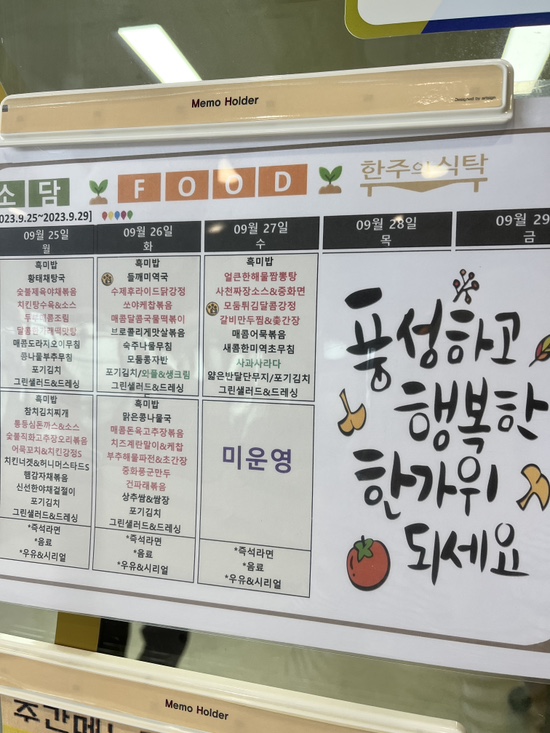 Memo Holder
소담 FOOD 한주의 식탁
2023.9.25~2023.9.29]
09월 25일 09월 26일 09월 27일 09월 28일 09월 29
월 화 수 목 금
흑미밥
황태채탕국
숯불제육야채볶음
치킨탕수육&소스
두부매콤조림
달콤한기름떡맛탕
매콤도라지오이무침
콩나물부추무침
포기김치
그린샐러드&드레싱
흑미밥
들깨미역국
수제후라이드닭강정
쏘야케찹볶음
매콤달콤국물떡볶이
브로콜리게맛살볶음
숙주나물무침
모둠콩자반
포기김치/와플&생크림
그린샐러드&드레싱
흑미밥
얼큰한해물짬뽕탕
사천짜장소스&중화면
모둠튀김달콤강정
갈비만두찜&초간장
매콤어묵볶음
새콤한미역초무침
사과사라다
얇은반달단무지/포기김치
그린샐러드&드레싱
흑미밥
참치김치찌개
통등심돈까스&소스
숯불직화고추장오리볶음
어묵꼬지&치킨강정S
치킨너겟&허니머스타드S
햄감자채볶음
신선한야채겉절이
포기김치
그린샐러드&드레싱
흑미밥
맑은콩나물국
매콤돈육고추장볶음
치즈계란말이&케찹
부추해물파전&초간장
중화풍군만두
건파래볶음
상추쌈&쌈장
포기김치
그린샐러드&드레싱
미운영
*즉석라면
*음료
*우유&시리얼
*즉석라면
*음료
*우유&시리얼
*즉석라면
*음료
*우유&시리얼
풍성하고
행복한
한가위
되세요
Memo Holder
주간메뉴